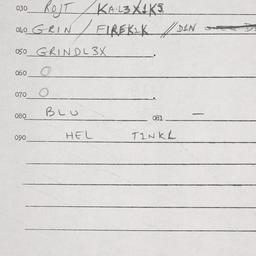 030 ROJT / KAL3X1KS
040 GRIN / FIREK1K // D1N
050 GRINDL3X
060 O
070 O
080 BLU 081 –
090 HEL T1NKL